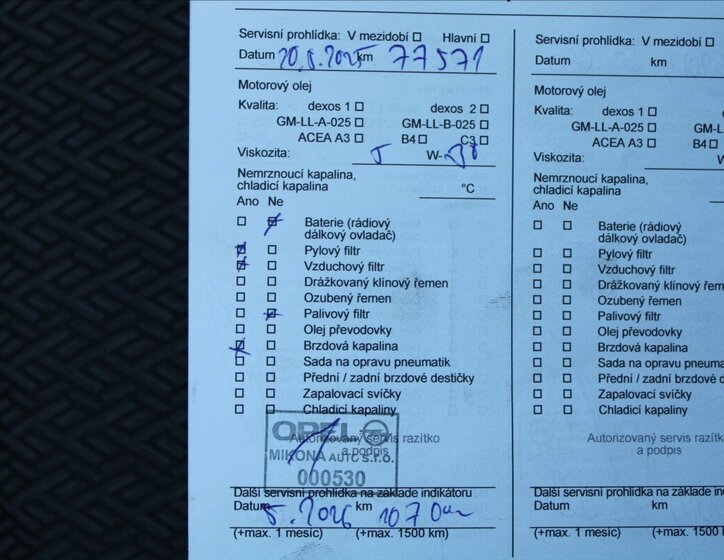 Servisní prohlídka: V mezidobí Hlavní
Datum 20.5.2025 km 77571
Motorový olej
Kvalita: dexos 1 dexos 2
GM-LL-A-025 GM-LL-B-025
ACEA A3 B4 C3
Viskozita: 5 W-30
Nemrznoucí kapalina,
chladicí kapalina °C
Ano Ne
Baterie (rádiový
dálkový ovladač)
Pylový filtr
Vzduchový filtr
Drážkovaný klínový řemen
Ozubený řemen
Palivový filtr
Olej převodovky
Brzdová kapalina
Sada na opravu pneumatik
Přední / zadní brzdové destičky
Zapalovací svíčky
Chladicí kapaliny
OPEL
Autorizovaný servis razítko
a podpis
MIKONA AUTO s.r.o.
000530
Další servisní prohlídka na základe indikátoru
Datum 5. 2026 km 107 000
(+max. 1 mesic) (+max. 1500 km)
Servisní prohlídka: V mezidobí
Datum km
Motorový olej
Kvalita: dexos 1
GM-LL-A-025 GM-L
ACEA A3 B4
Viskozita: W
Nemrznoucí kapalina,
chladicí kapalina
Ano Ne
Baterie (rádiový
dálkový ovladač)
Pylový filtr
Vzduchový filtr
Drážkovaný klínový řem
Ozubený řemen
Palivový filtr
Olej převodovky
Brzdová kapalina
Sada na opravu pneuma
Přední / zadní brzdové d
Zapalovací svíčky
Chladicí kapaliny
Autorizovaný servis raz
a podpis
Další servisní prohlídka na základe in
Datum km
(+max. 1 mesic) (+max. 1